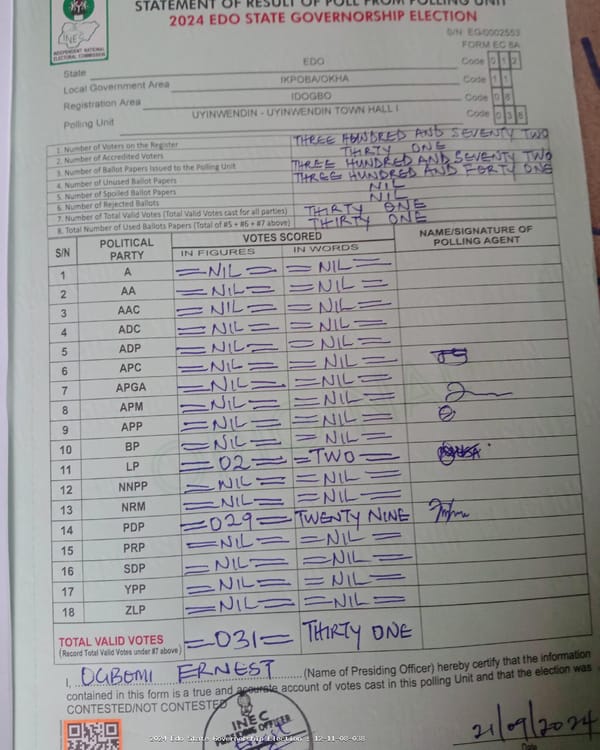 STATEMENT OF RESULT OF POLL FROM POLLING UNIT
2024 EDO STATE GOVERNORSHIP ELECTION
INEC
INDEPENDENT NATIONAL ELECTORAL COMMISSION
S/N EG/0002553
FORM EC 8A
State EDO Code 0 1 2
Local Government Area IKPOBA/OKHA Code 1 1
Registration Area IDOGBO Code 0 8
Polling Unit UYINWENDIN - UYINWENDIN TOWN HALL I Code 0 3 8
1. Number of Voters on the Register THREE HUNDRED AND SEVENTY TWO
2. Number of Accredited Voters THIRTY ONE
3. Number of Ballot Papers Issued to the Polling Unit THREE HUNDRED AND SEVENTY TWO
4. Number of Unused Ballot Papers THREE HUNDRED AND FORTY ONE
5. Number of Spoiled Ballot Papers NIL
6. Number of Rejected Ballots NIL
7. Number of Total Valid Votes (Total Valid Votes cast for all parties) THIRTY ONE
8. Total Number of Used Ballots Papers (Total of #5 + #6 + #7 above) THIRTY ONE
S/N POLITICAL PARTY VOTES SCORED NAME/SIGNATURE OF POLLING AGENT
IN FIGURES IN WORDS
1 A =NIL= =NIL=
2 AA =NIL= =NIL=
3 AAC =NIL= =NIL=
4 ADC =NIL= =NIL=
5 ADP =NIL= =NIL=
6 APC =NIL= =NIL=
7 APGA =NIL= =NIL=
8 APM =NIL= =NIL=
9 APP =NIL= =NIL=
10 BP =NIL= =NIL=
11 LP =02= =TWO=
12 NNPP =NIL= =NIL=
13 NRM =NIL= =NIL=
14 PDP =029= TWENTY NINE
15 PRP =NIL= =NIL=
16 SDP =NIL= =NIL=
17 YPP =NIL= =NIL=
18 ZLP =NIL= =NIL=
TOTAL VALID VOTES =031= THIRTY ONE
(Record Total Valid Votes under #7 above)
I, OGBOMI ERNEST (Name of Presiding Officer) hereby certify that the information
contained in this form is a true and accurate account of votes cast in this polling Unit and that the election was
CONTESTED/NOT CONTESTED
INEC
21/09/2024
2024 Edo State Governorship Election : 12-11-08-038
Date